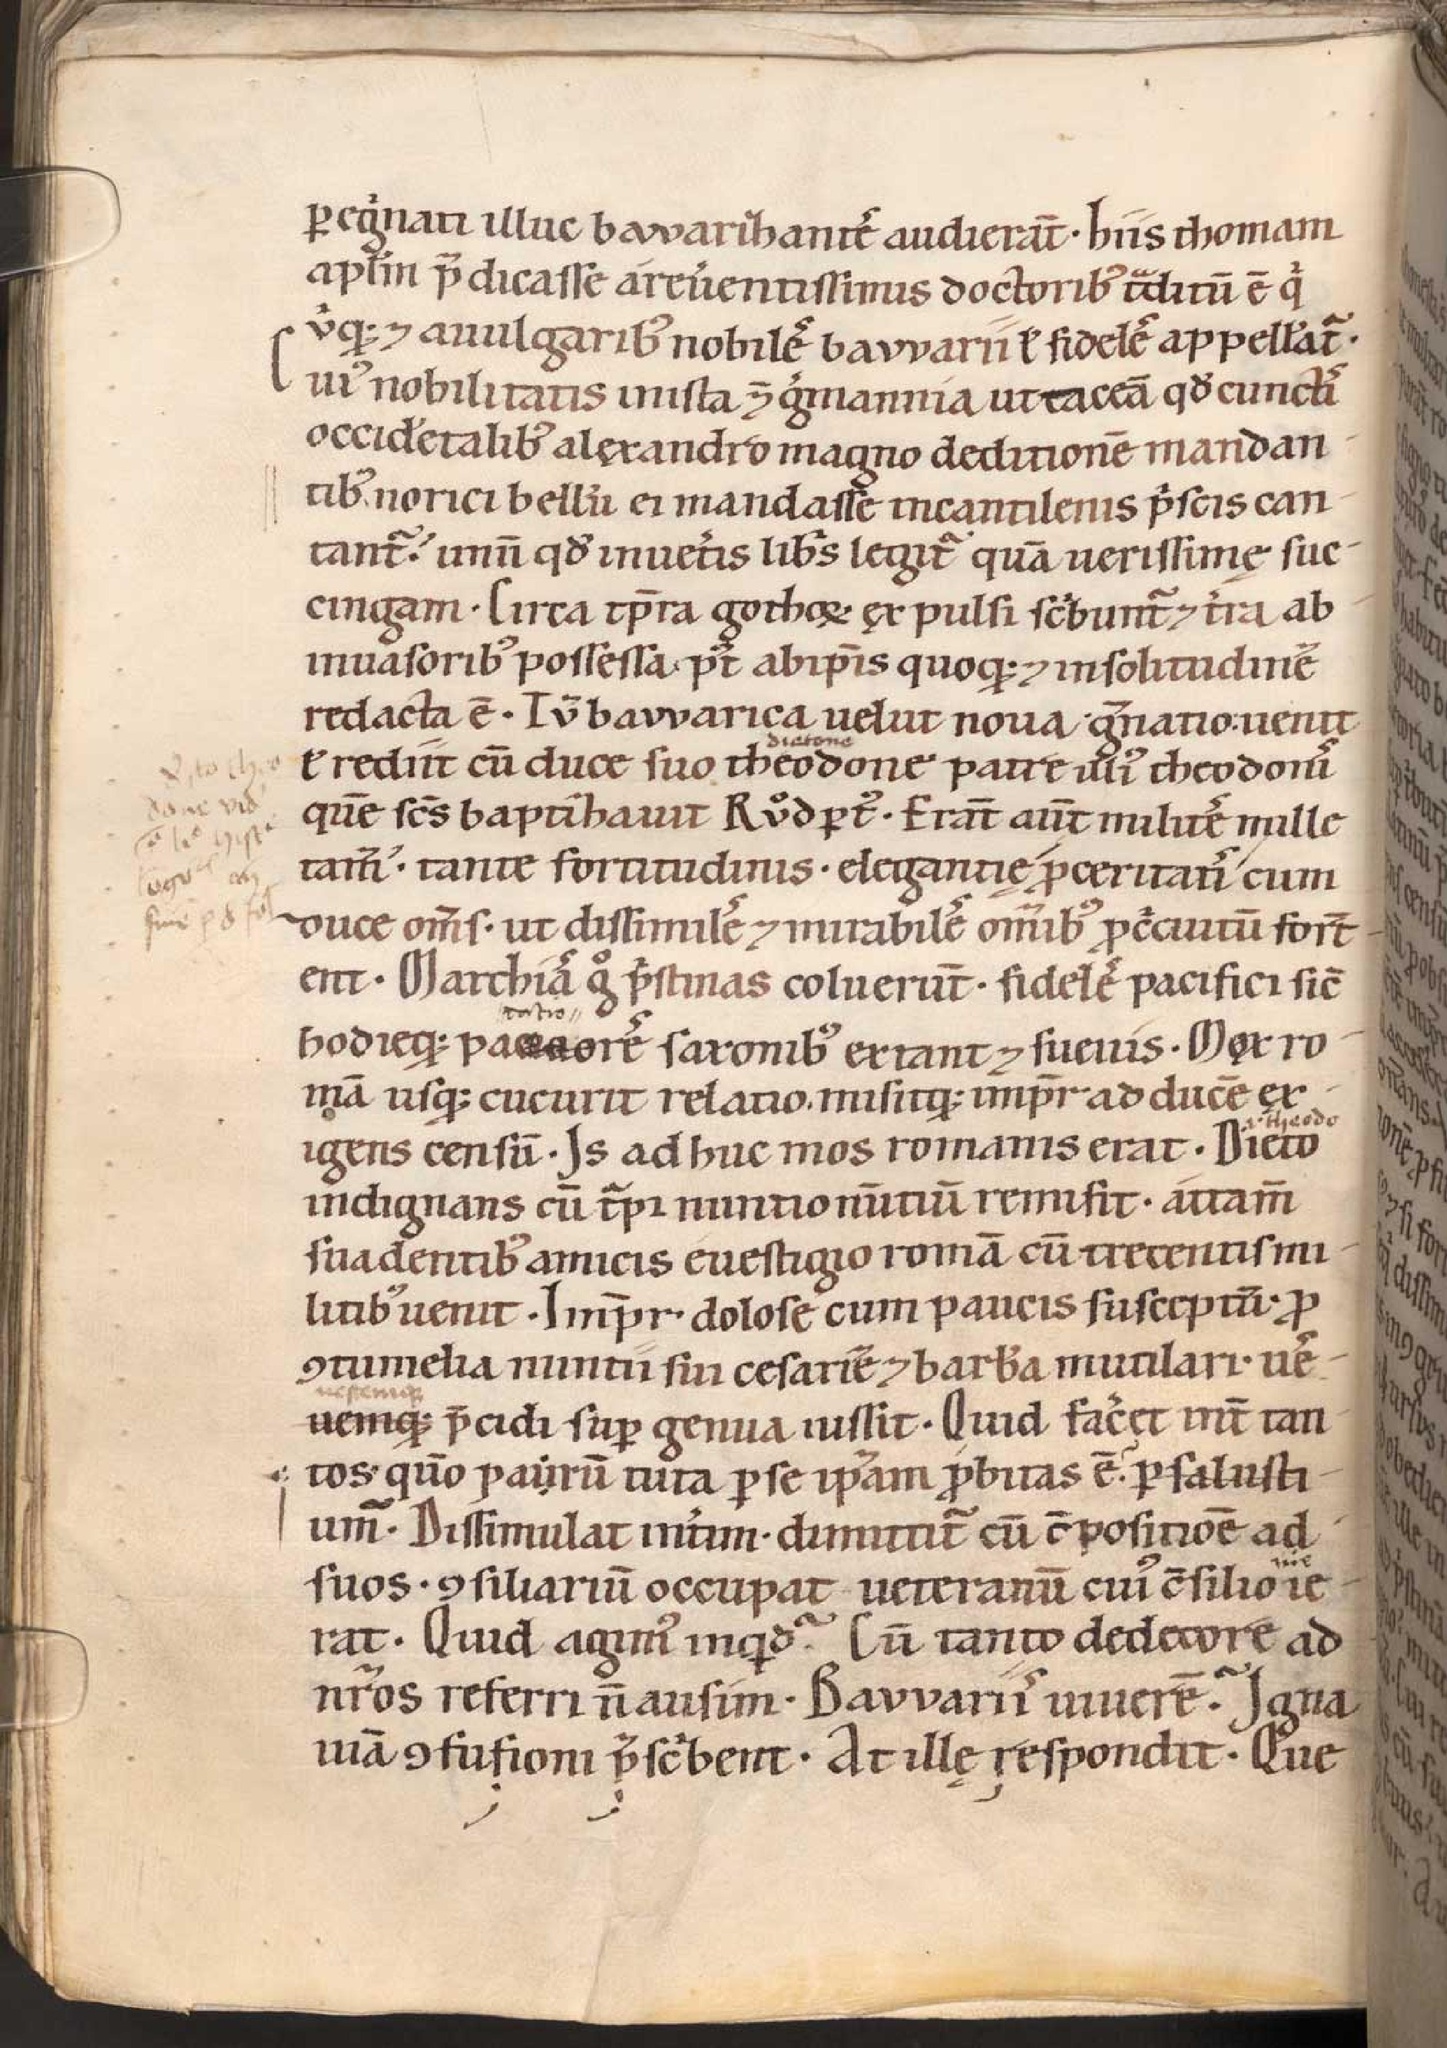 ꝑegͥnati illuc bavvarihantēs audierāt · hiis thomam
aplm̄ p̄dicasse áreuͤentissimis doctoribꝰ tͣditū ē qͥ
uͥqꝫ ⁊ auulgaribꝰ nobilēs bavvarii ł fidelēs appellāt̃ ·
uiꝰ nobilitatis inista ⁊̄ gͥmannia ut taceā qđ cunctis
occidētalibꝰ alexandro magno deditionē mandan
tibꝰ norici bellū ei mandasse incantilenis pͥscis can
tant̃ · unū qđ inueͭis libͥs legit̃ quā uerissimę suc
cingam · Circa tp̄ra gothoꝝ expulsi scͥbunt̃ ⁊ tr̄ra ab
inuasoribꝰ possessa · pꝰt abip̄is quoqꝫ ⁊ insolitudinē
redacta ē · Iv̄ bavvarica uelut noua gn̄natio uenit
ł rediit cū duce suo theodone patre illiꝰ theodonis
dietone
quē scs̄ baptihauit Rͦvdꝑtꝰ · Erāt aūt militēs mille
tam̄ · tante fortitudinis · elegantię ꝓceritatis cum
duce om̄s · ut dissimilēs ⁊ mirabilēs om̄ibꝰ ꝓcͥcuitū for̄
ent · Marchiās gͦ pͥstinas coluerūt · fidelēs pacifici sic̄
hodieqꝫ pacatiorēs saxonibꝰ extant ⁊ sueuis · Mox ro
mā usqꝫ cucurit relatio · misitqꝫ imp̄r ad ducē ex
igens censū · Is ad huc mos romanis erat · Dieto
theodo
indignans cū tͣpi nuntio nūtiū remisit · áttam̄
suadentibꝰ amicis éuestigio romā cū trecentis mi
litibꝰ uenit · Imp̄r · dolose cum paucis susceptū · ꝓ
ꝯtumelia nuntii sui cesariē ⁊ barba mutilari · ués
uestemqꝫ
uemqꝫ p̄cidi suꝑ genua iussit · Quid facͤet int̄ tan
tos · quo pauꝝrū tuta ꝑ se ip̄am ꝓbitas ē · ꝑ salusti
um̃ · Dissimulat intͥim · dimittit̃ cū c̄positiōe ad
suos · ꝯsiliariū occupat ueteranū cuiꝰ c̄silio ie
rat · Quid agimꝰ inqđ · Cū tanto dedecore ad
nr̄os referri n̄ ausim · Bavvariis uiuerē · Igna
uiā ꝯfusioni p̄scͥbent · At ille respondit · Que